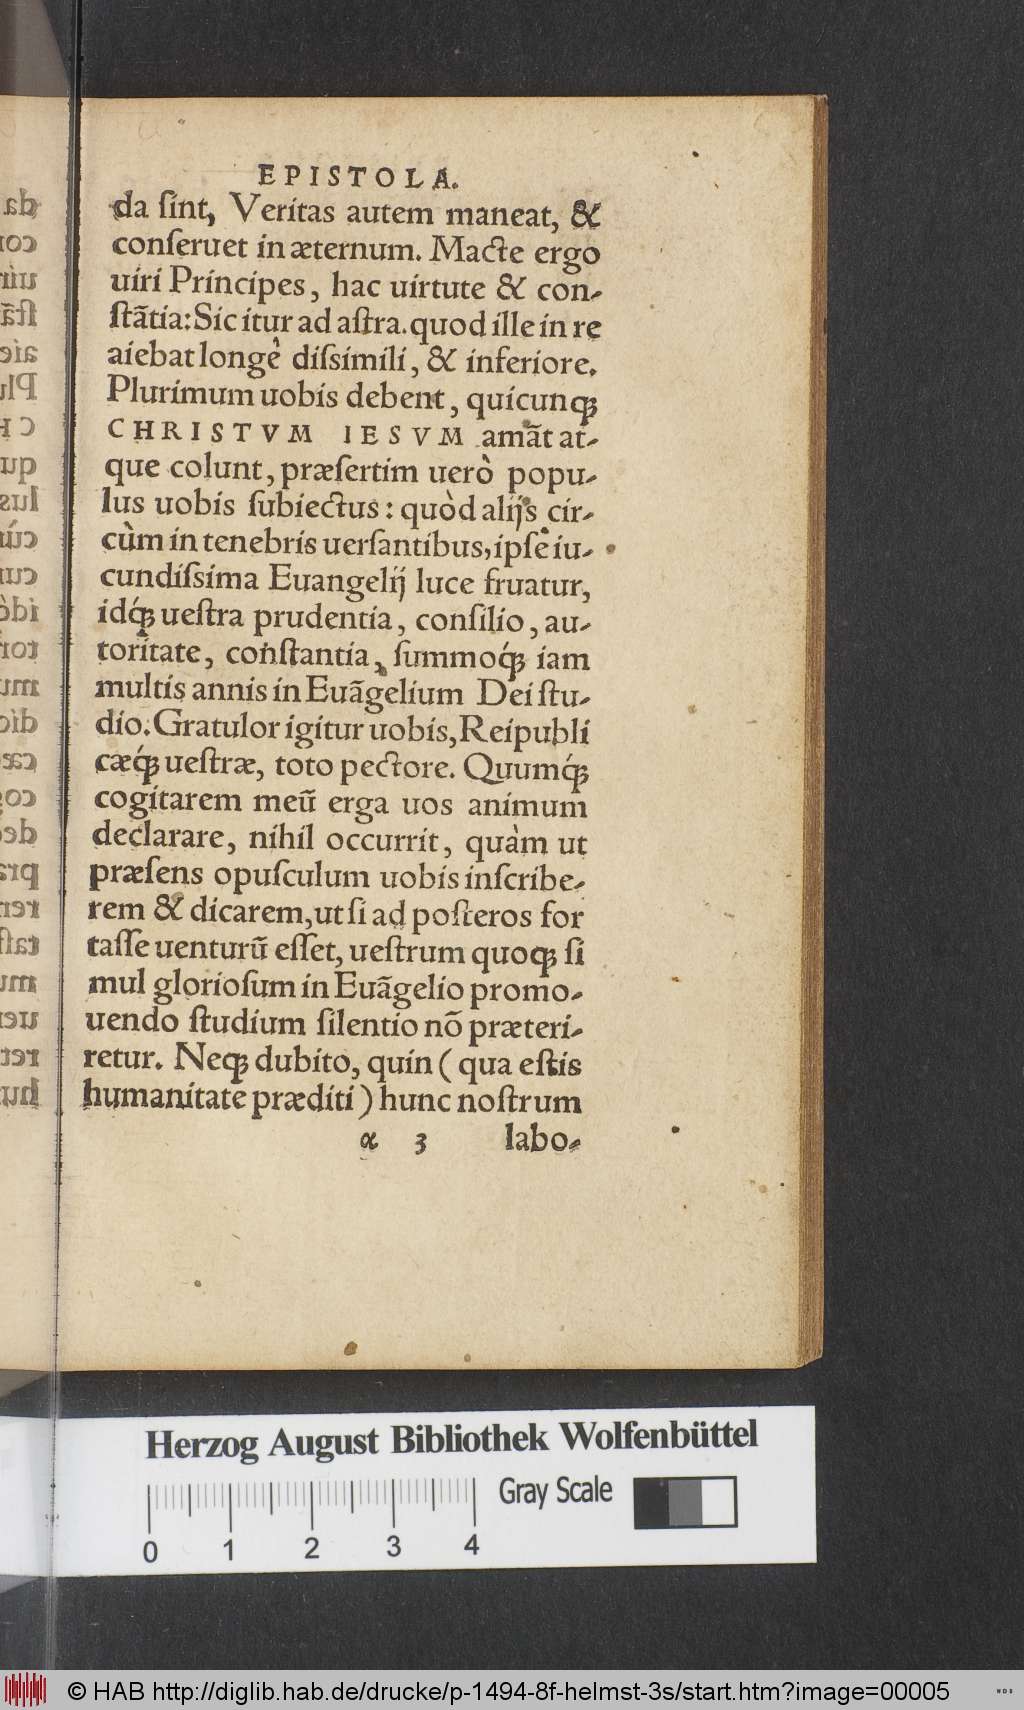 EPISTOLA.
da ſint, Veritas autem maneat, &
conſeruet in æternum. Macte ergo
uiri Principes, hac uirtute & con-
ſtãtia: Sic itur ad aſtra. quod ille in re
aiebat longè diſsimili, & inferiore.
Plurimum uobis debent, quicunqꝫ
CHRISTVM IESVM amãt at-
que colunt, præſertim uerò popu-
lus uobis ſubiectus: quòd alijs cir-
cùm in tenebris uerſantibus, ipſe iu-
cundiſsima Euangelij luce fruatur,
idqꝫ́ ueſtra prudentia, conſilio, au-
toritate, conſtantia, ſummoqꝫ́ iam
multis annis in Euãgelium Dei ſtu-
dio. Gratulor igitur uobis, Reipubli
cæqꝫ́ ueſtræ, toto pectore. Quumqꝫ́
cogitarem meũ erga uos animum
declarare, nihil occurrit, quàm ut
præſens opuſculum uobis inſcribe-
rem & dicarem, ut ſi ad poſteros for
taſſe uenturũ eſſet, ueſtrum quoqꝫ ſi
mul glorioſum in Euãgelio promo-
uendo ſtudium ſilentio nõ præteri-
retur. Neqꝫ dubito, quin ( qua eſtis
humanitate præditi ) hunc noſtrum
α 3 labo-
Herzog August Bibliothek Wolfenbüttel
Gray Scale
0 1 2 3 4
© HAB http://diglib.hab.de/drucke/p-1494-8f-helmst-3s/start.htm?image=00005